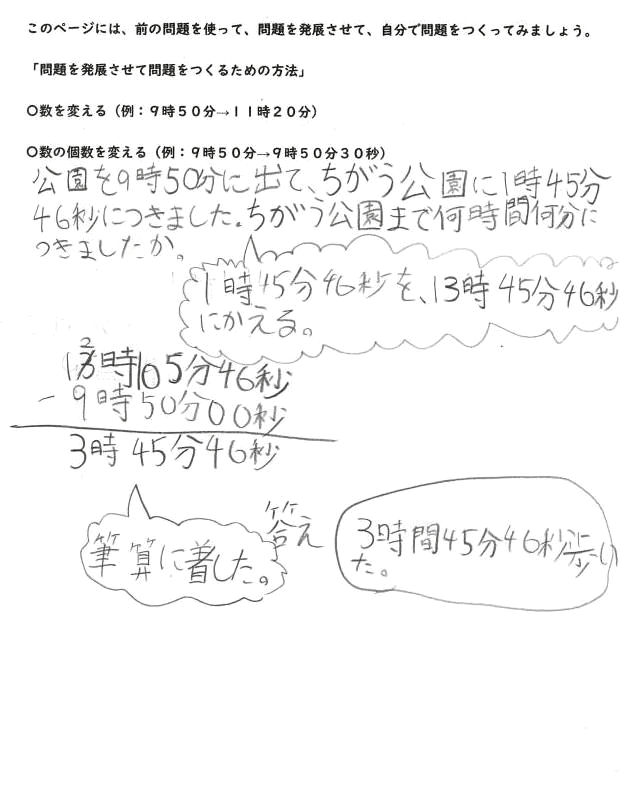 このページには、前の問題を使って、問題を発展させて、自分で問題をつくってみましょう。
「問題を発展させて問題をつくるための方法」
○数を変える（例：９時５０分→１１時２０分）
○数の個数を変える（例：９時５０分→９時５０分３０秒）
公園を9時50分に出て、ちがう公園に1時45分
46秒につきました。ちがう公園まで何時間何分に
つきましたか。
1時45分46秒を、13時45分46秒
にかえる。
2
13時105分46秒
- 9時50分00秒
3時45分46秒
筆算に着した。
答え
3時間45分46秒
た。